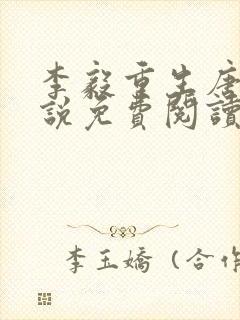 李毅重生唐
說免費閱讀
李玉嬌（合作